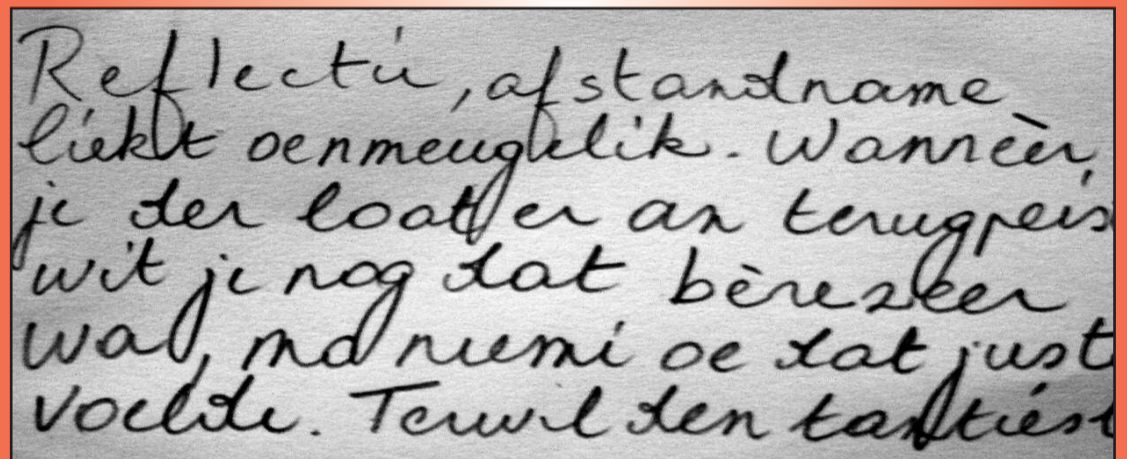 Reflectie, afstandname
liekt oenmeugelik. Wanneèr
je der loater an terugpeis
wit je nog dat bèrezeer
was, ma niemi oe dat just
voelde. Terwil den